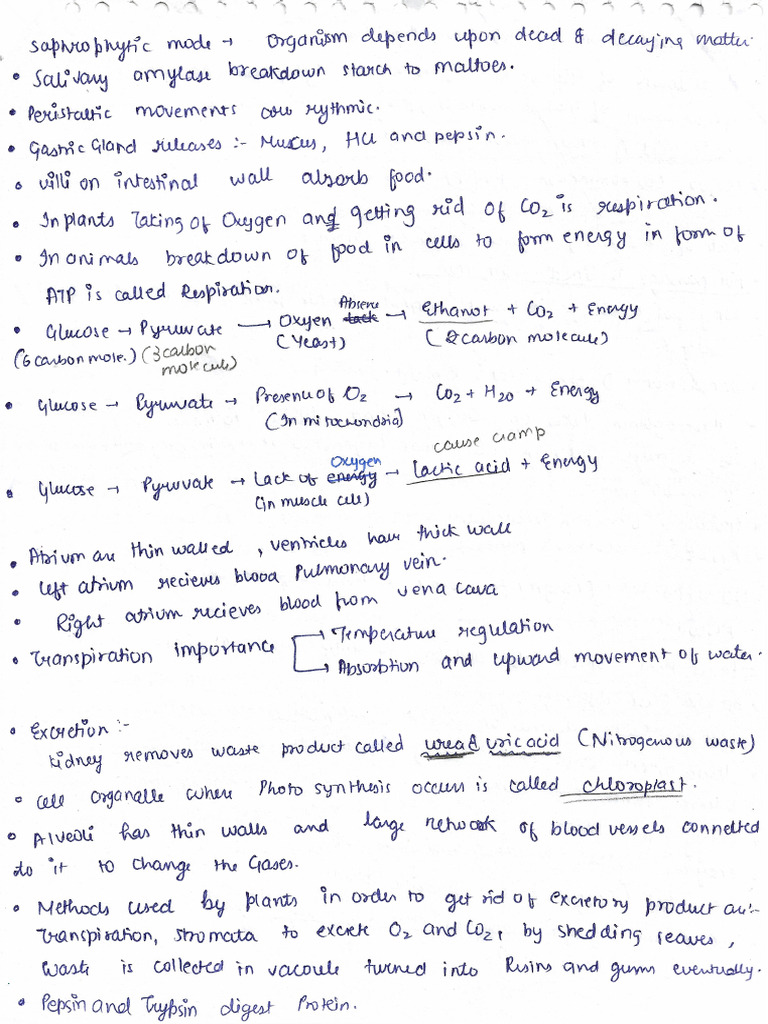 saprophytic mode → Organism depends upon dead & decaying matter.
• Salivary amylase breakdown starch to maltoes.
• Peristaltic movements are rythmic.
• Gastric Gland releases :- Mucus, HCl and pepsin.
• villi on intestinal wall absorb food.
• In plants Taking of Oxygen and getting rid of CO2 is respiration.
• In animals breakdown of food in cells to form energy in form of
ATP is called Respiration.
Absene
• Glucose → Pyruvate → Oxyen lack → Ethanol + CO2 + Energy
(6 carbon mole.) (3 carbon molecule) (Yeast) (2 carbon molecule)
• Glucose → Pyruvate → Presence of O2 → CO2 + H2O + Energy
(In mitochondria)
cause cramp
Oxygen
• Glucose → Pyruvate → Lack of energy → Lactic acid + Energy
(in muscle cell)
• Atrium are thin walled, ventricles have thick wall
• Left atrium recieves blood Pulmonary vein.
• Right atrium recieves blood from vena cava
→ Temperature regulation
• Transpiration importance
→ Absorbtion and upward movement of water.
• Excretion :-
Kidney removes waste product called urea & uric acid (Nitrogenous waste)
• Cell organalle where Photo synthesis occurs is called chloroplast.
• Alveoli has thin walls and large network of blood vessels connected
to it to change the Gases.
• Methods used by plants in order to get rid of excretory product are:-
Transpiration, stromata to excrete O2 and CO2, by shedding leaves,
waste is collected in vacoule turned into Resins and gums eventually.
• Pepsin and Trypsin digest Protein.